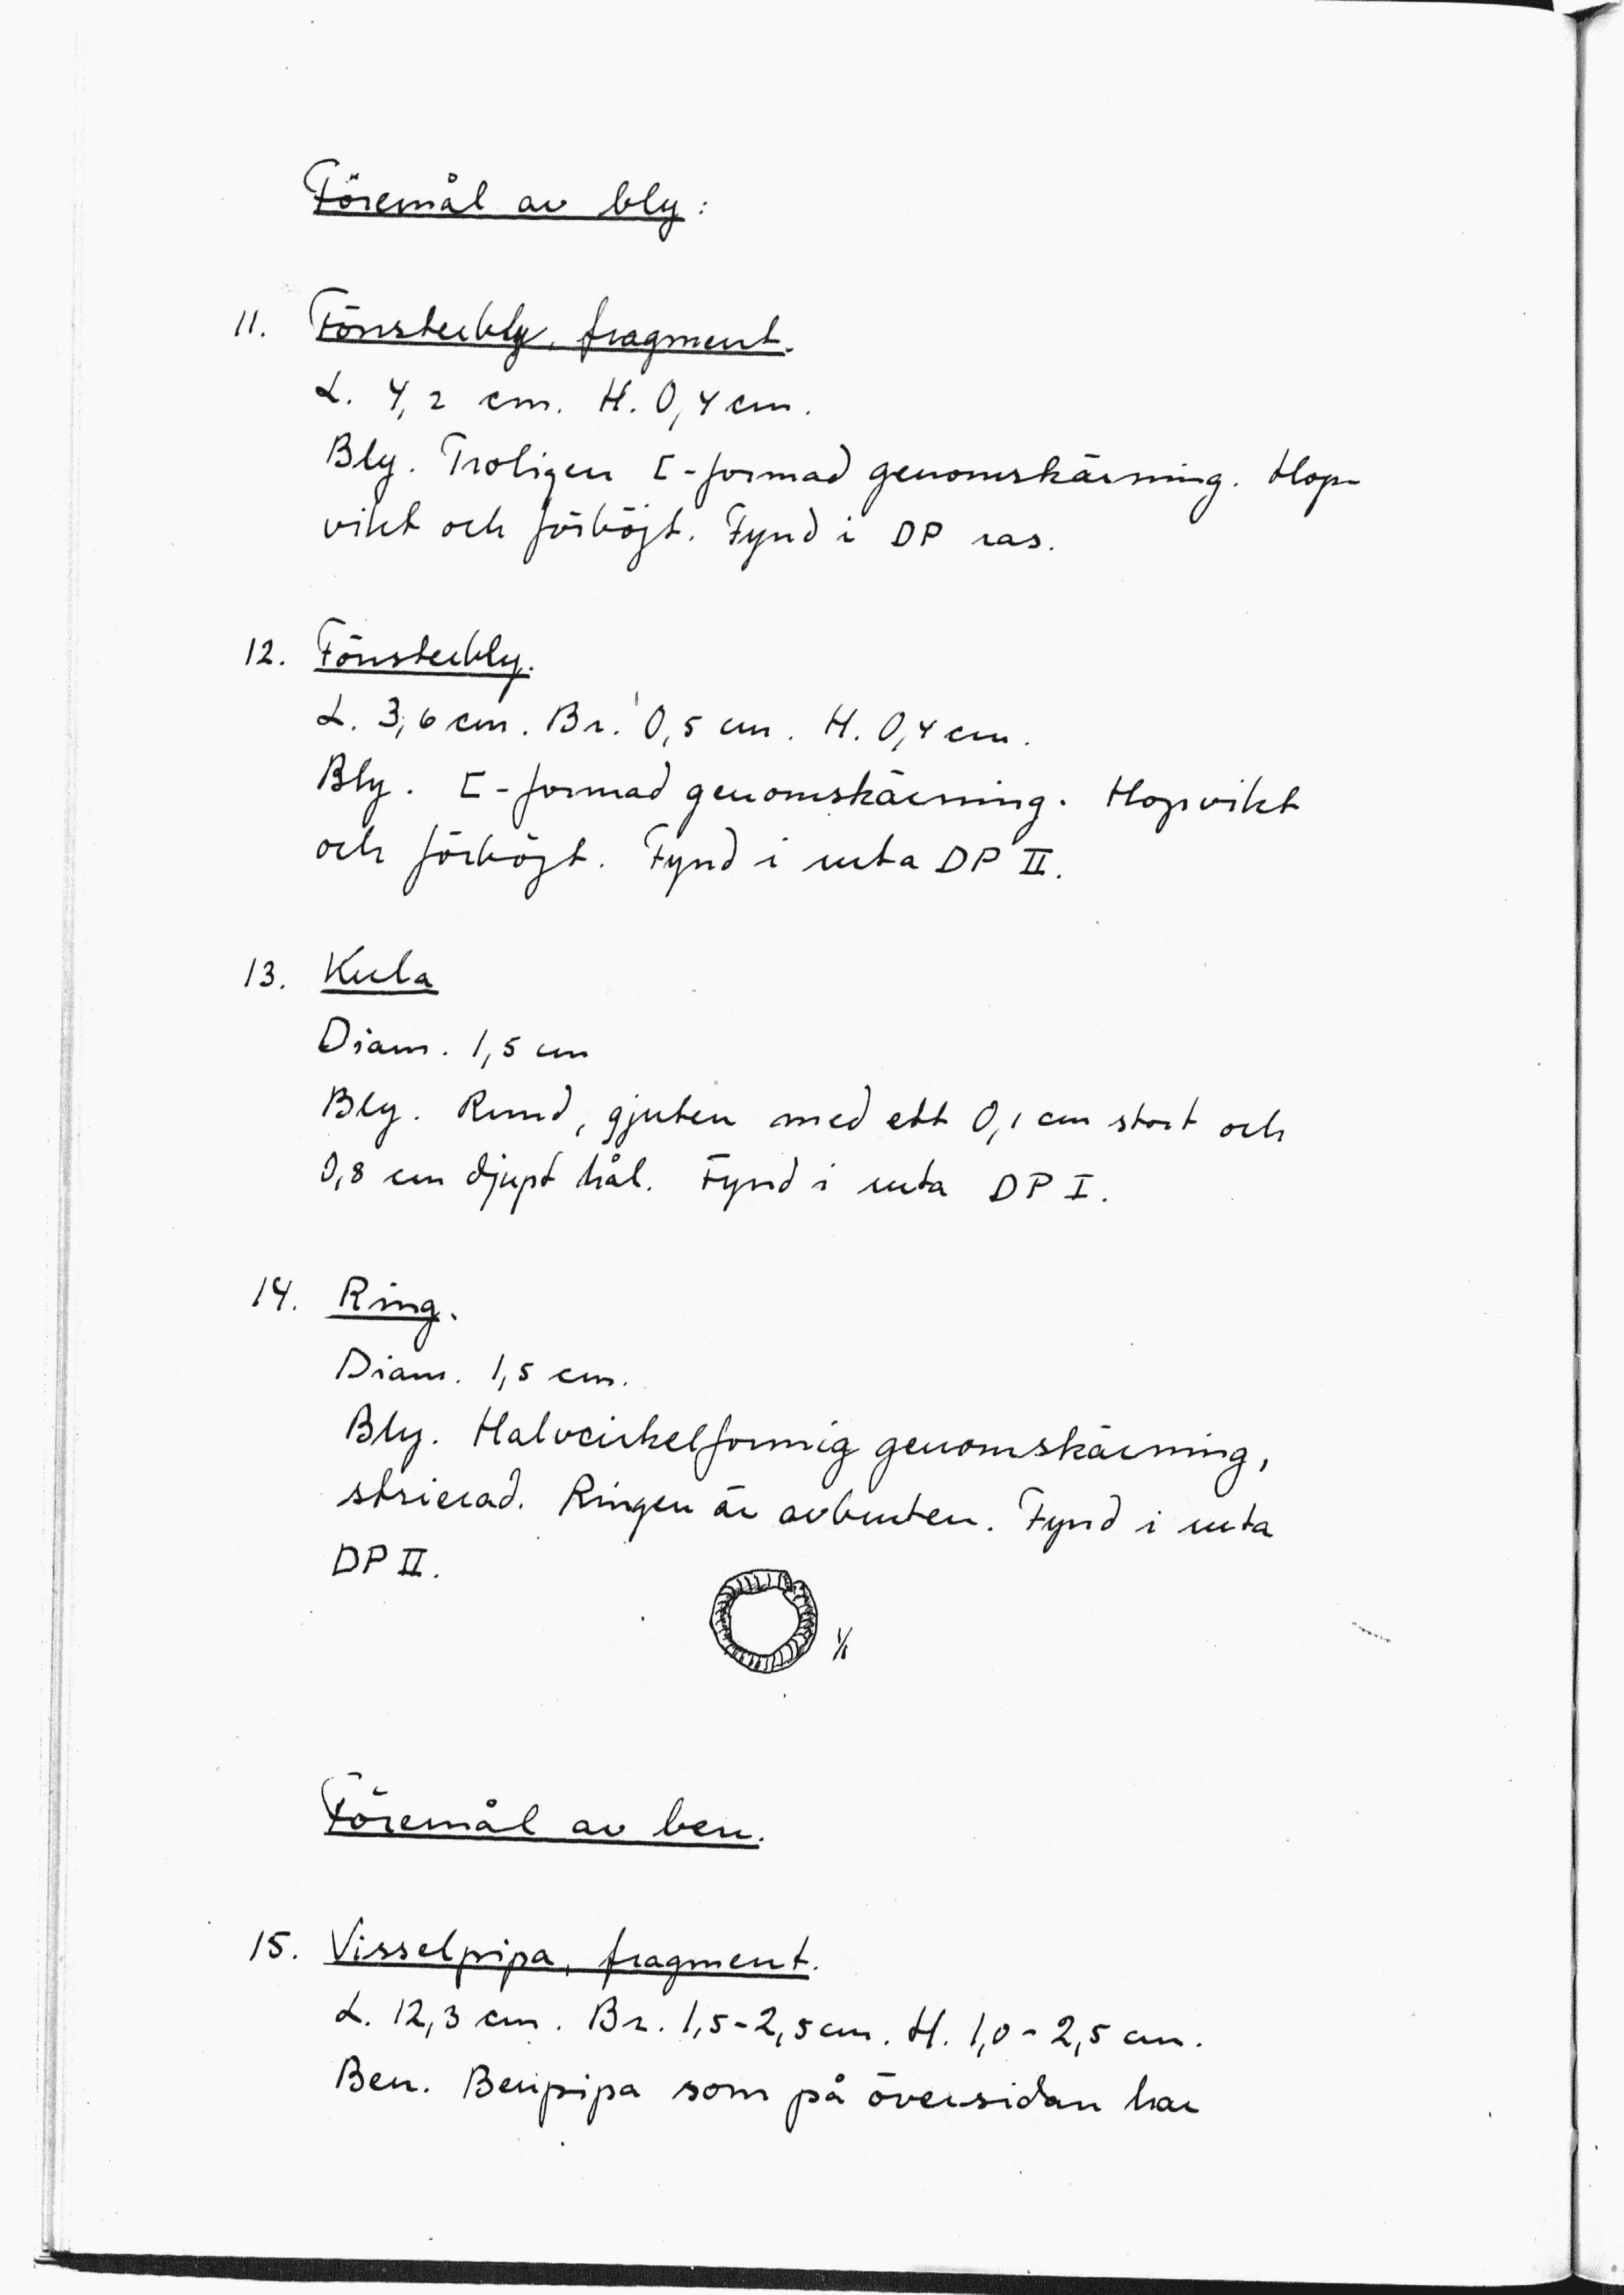 Föremål av bly:
11. Fönsterbly, fragment.
L. 4,2 cm. H. 0,4 cm.
Bly. Troligen [-formad genomskärning. Hop-
vikt och förböjt. Fynd i DP ras.
12. Fönsterbly.
L. 3,6 cm. Br. 0,5 cm. H. 0,4 cm.
Bly. [-formad genomskärning. Hopvikt
och förböjt. Fynd i ruta DP II.
13. Kula
Diam. 1,5 cm
Bly. Rund, gjuten med ett 0,1 cm stort och
0,8 cm djupt hål. Fynd i ruta DP I.
14. Ring.
Diam. 1,5 cm.
Bly. Halvcirkelformig genomskärning,
strierad. Ringen är avbruten. Fynd i ruta
DP II.
1/1
Föremål av ben.
15. Visselpipa, fragment.
L. 12,3 cm. Br. 1,5-2,5 cm. H. 1,0-2,5 cm.
Ben. Benpipa som på översidan har